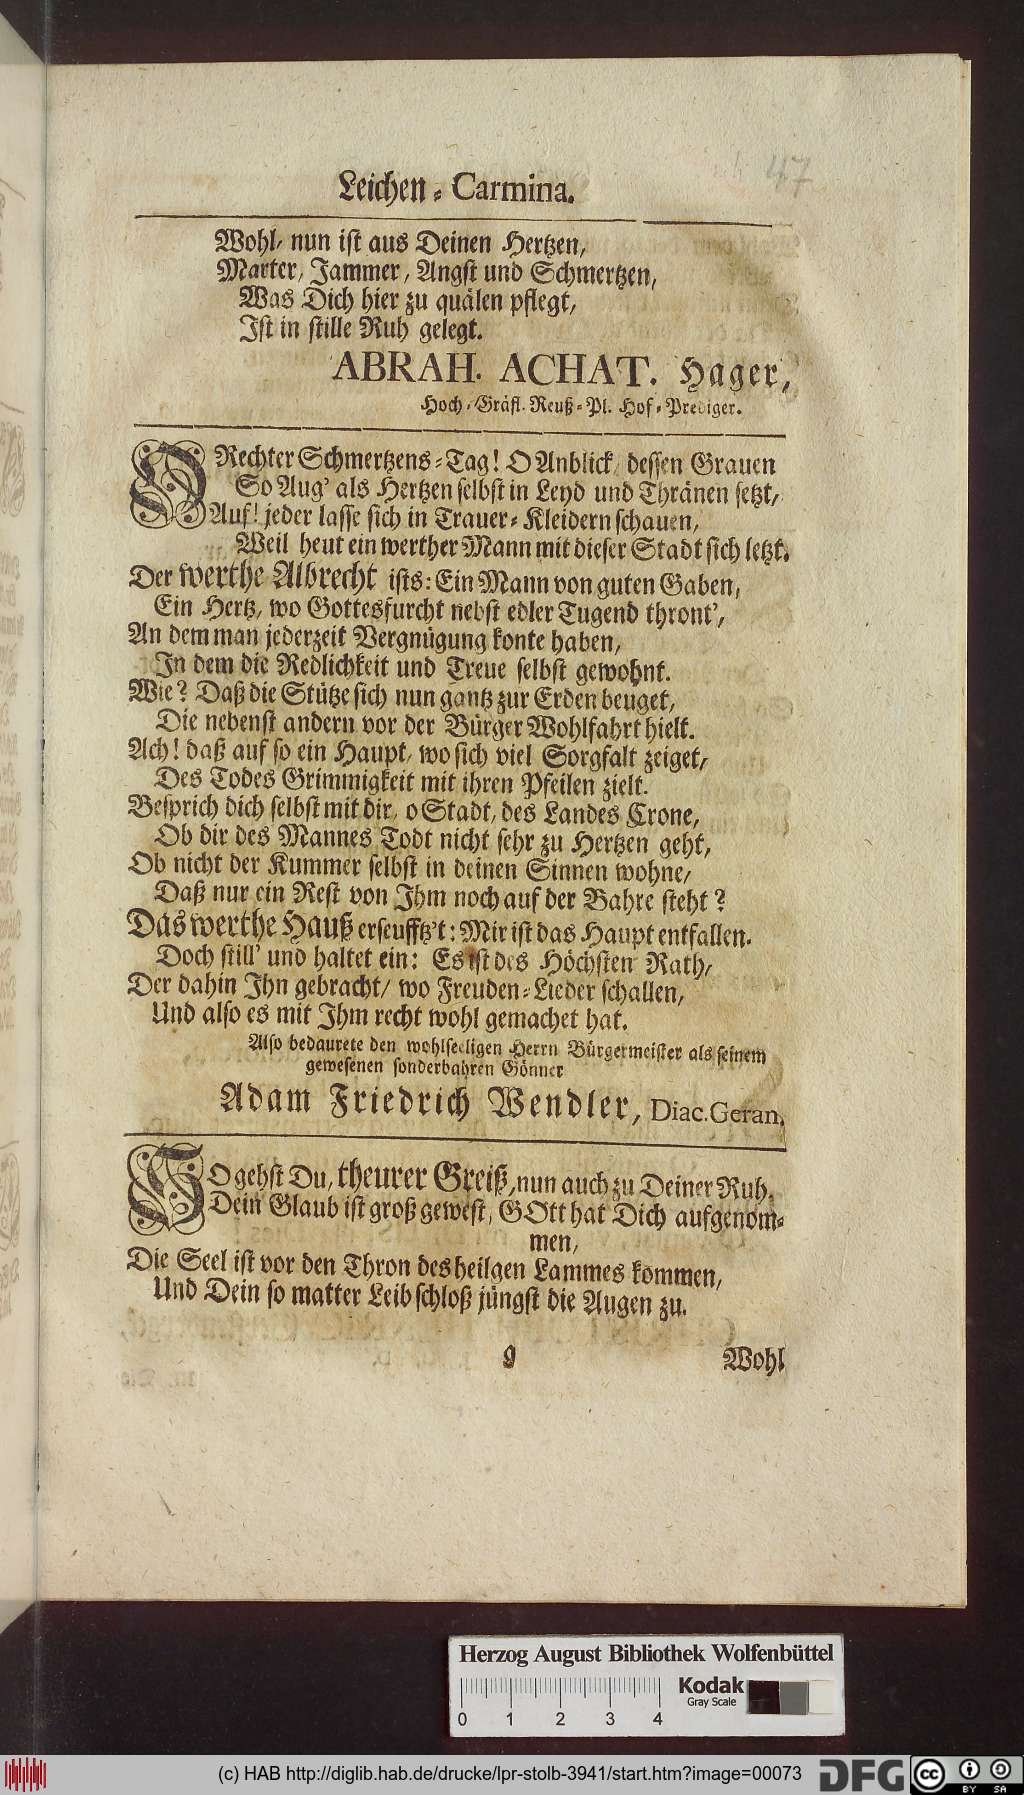 47
Leichen-Carmina.
Wohl/ nun ist aus Deinen Hertzen,
Marter/ Jammer/ Angst und Schmertzen,
Was Dich hier zu quälen pflegt,
Ist in stille Ruh gelegt.
ABRAH. ACHAT. Hager,
Hoch-Gräfl. Reuß-Pl. Hof-Prediger.
ORechter Schmertzens-Tag! O Anblick/ dessen Grauen
So Aug' als Hertzen selbst in Leyd und Thränen setzt/
Auf! jeder lasse sich in Trauer-Kleidern schauen,
Weil heut ein werther Mann mit dieser Stadt sich letzt.
Der werthe Albrecht ists: Ein Mann von guten Gaben,
Ein Hertz, wo Gottesfurcht nebst edler Tugend thront',
An dem man jederzeit Vergnügung konte haben,
In dem die Redlichkeit und Treue selbst gewohnt.
Wie? Daß die Stütze sich nun gantz zur Erden beuget,
Die nebenst andern vor der Bürger Wohlfahrt hielt.
Ach! daß auf so ein Haupt/ wo sich viel Sorgfalt zeiget/
Des Todes Grimmigkeit mit ihren Pfeilen zielt.
Besprich dich selbst mit dir/ o Stadt, des Landes Crone,
Ob dir des Mannes Todt nicht sehr zu Hertzen geht,
Ob nicht der Kummer selbst in deinen Sinnen wohne/
Daß nur ein Rest von Ihm noch auf der Bahre steht?
Das werthe Hauß erseufftz't: Mir ist das Haupt entfallen.
Doch still' und haltet ein: Es ist des Höchsten Rath/
Der dahin Ihn gebracht/ wo Freuden-Lieder schallen,
Und also es mit Ihm recht wohl gemachet hat.
Also bedaurete den wohlseeligen Herrn Bürgermeister als seinem
gewesenen sonderbahren Gönner
Adam Friedrich Wendler, Diac. Geran.
SO gehst Du, theurer Greiß, nun auch zu Deiner Ruh,
Dein Glaub ist groß gewest, GOtt hat Dich aufgenom-
men,
Die Seel ist vor den Thron des heilgen Lammes kommen,
Und Dein so matter Leib schloß jüngst die Augen zu.
g Wohl
Herzog August Bibliothek Wolfenbüttel
Kodak
Gray Scale
0 1 2 3 4
(c) HAB http://diglib.hab.de/drucke/lpr-stolb-3941/start.htm?image=00073
DFG
cc BY SA